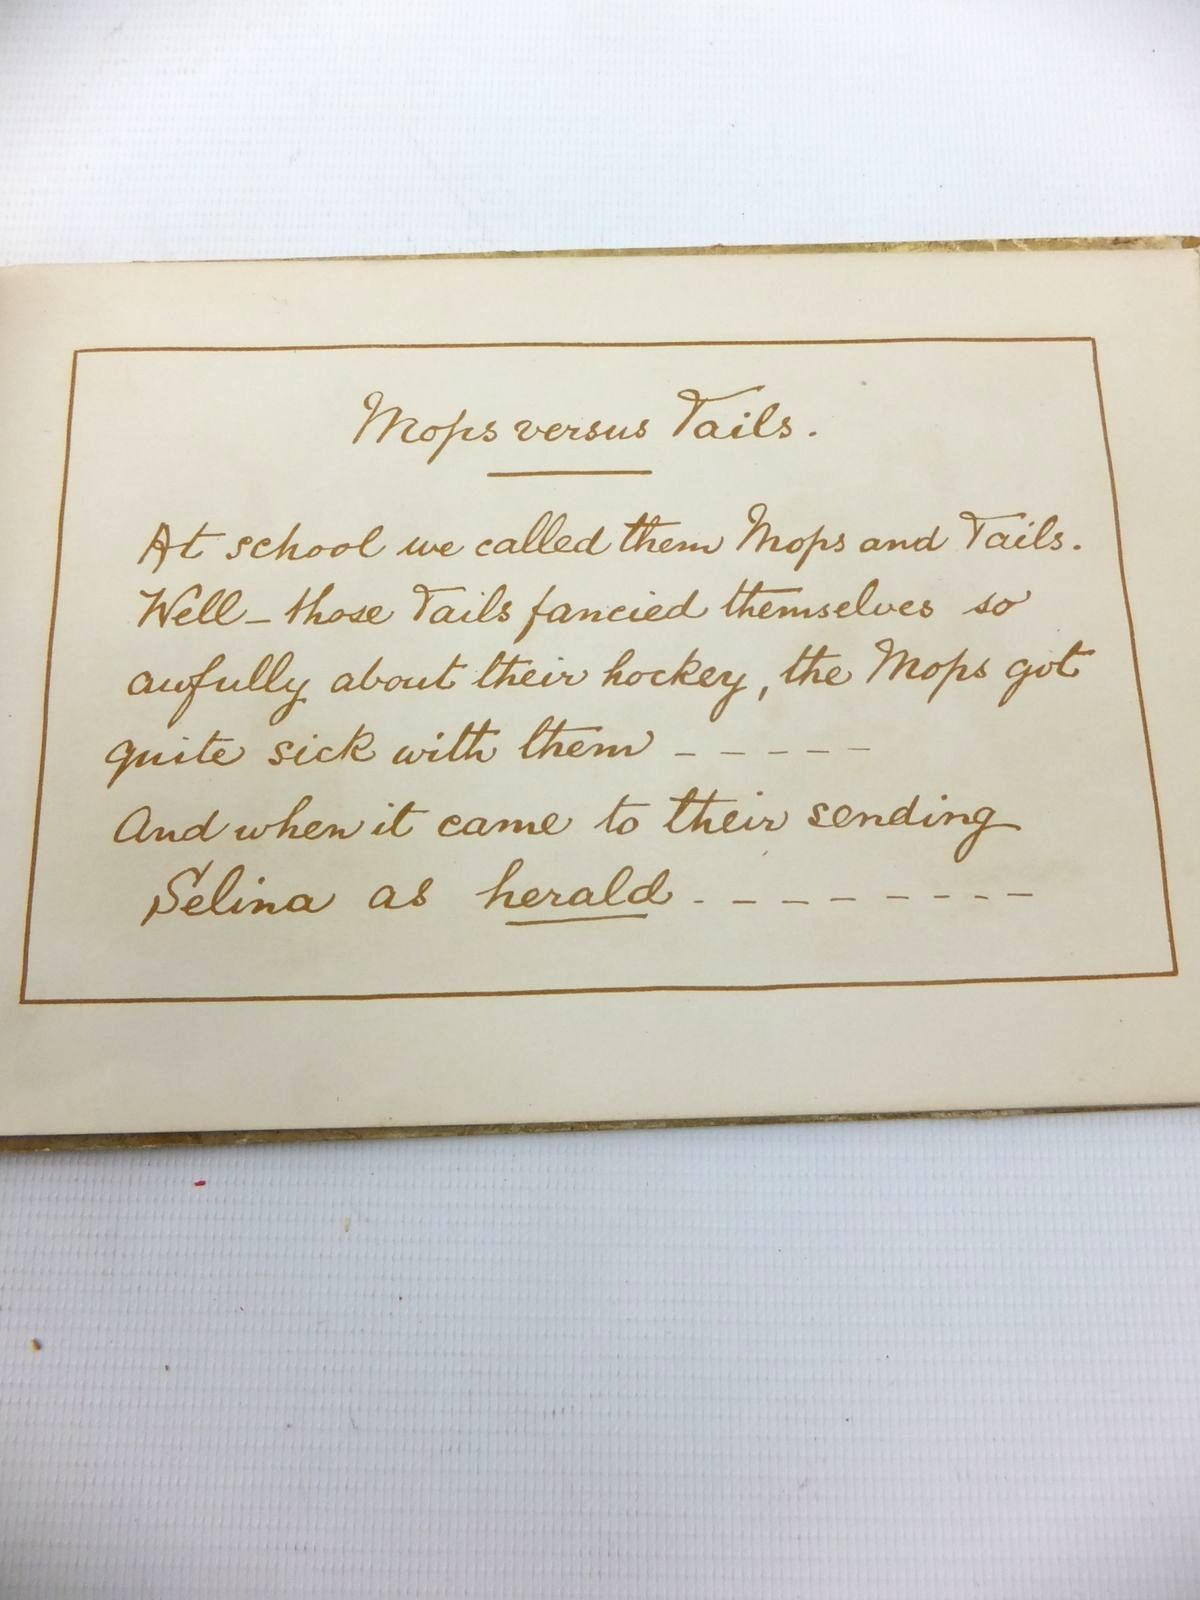 Mops versus Tails.
At school we called them Mops and Tails.
Well – those Tails fancied themselves so
awfully about their hockey, the Mops got
quite sick with them – – – – –
And when it came to their sending
Selina as herald – – – – – – – –